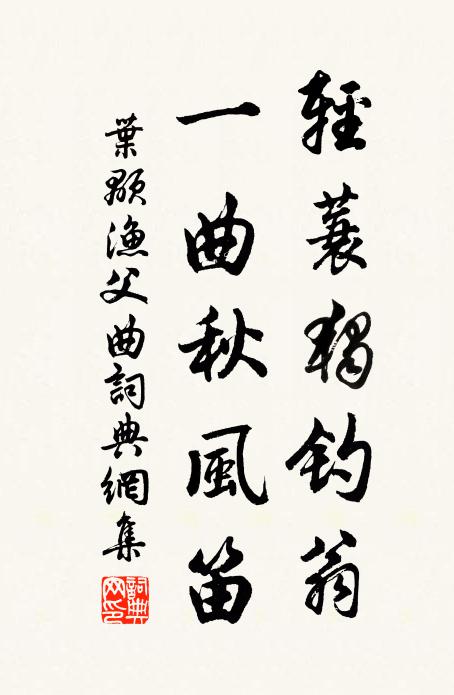 輕蓑獨釣翁
一曲秋風笛
葉顒漁父曲詞典網集
詞典網印